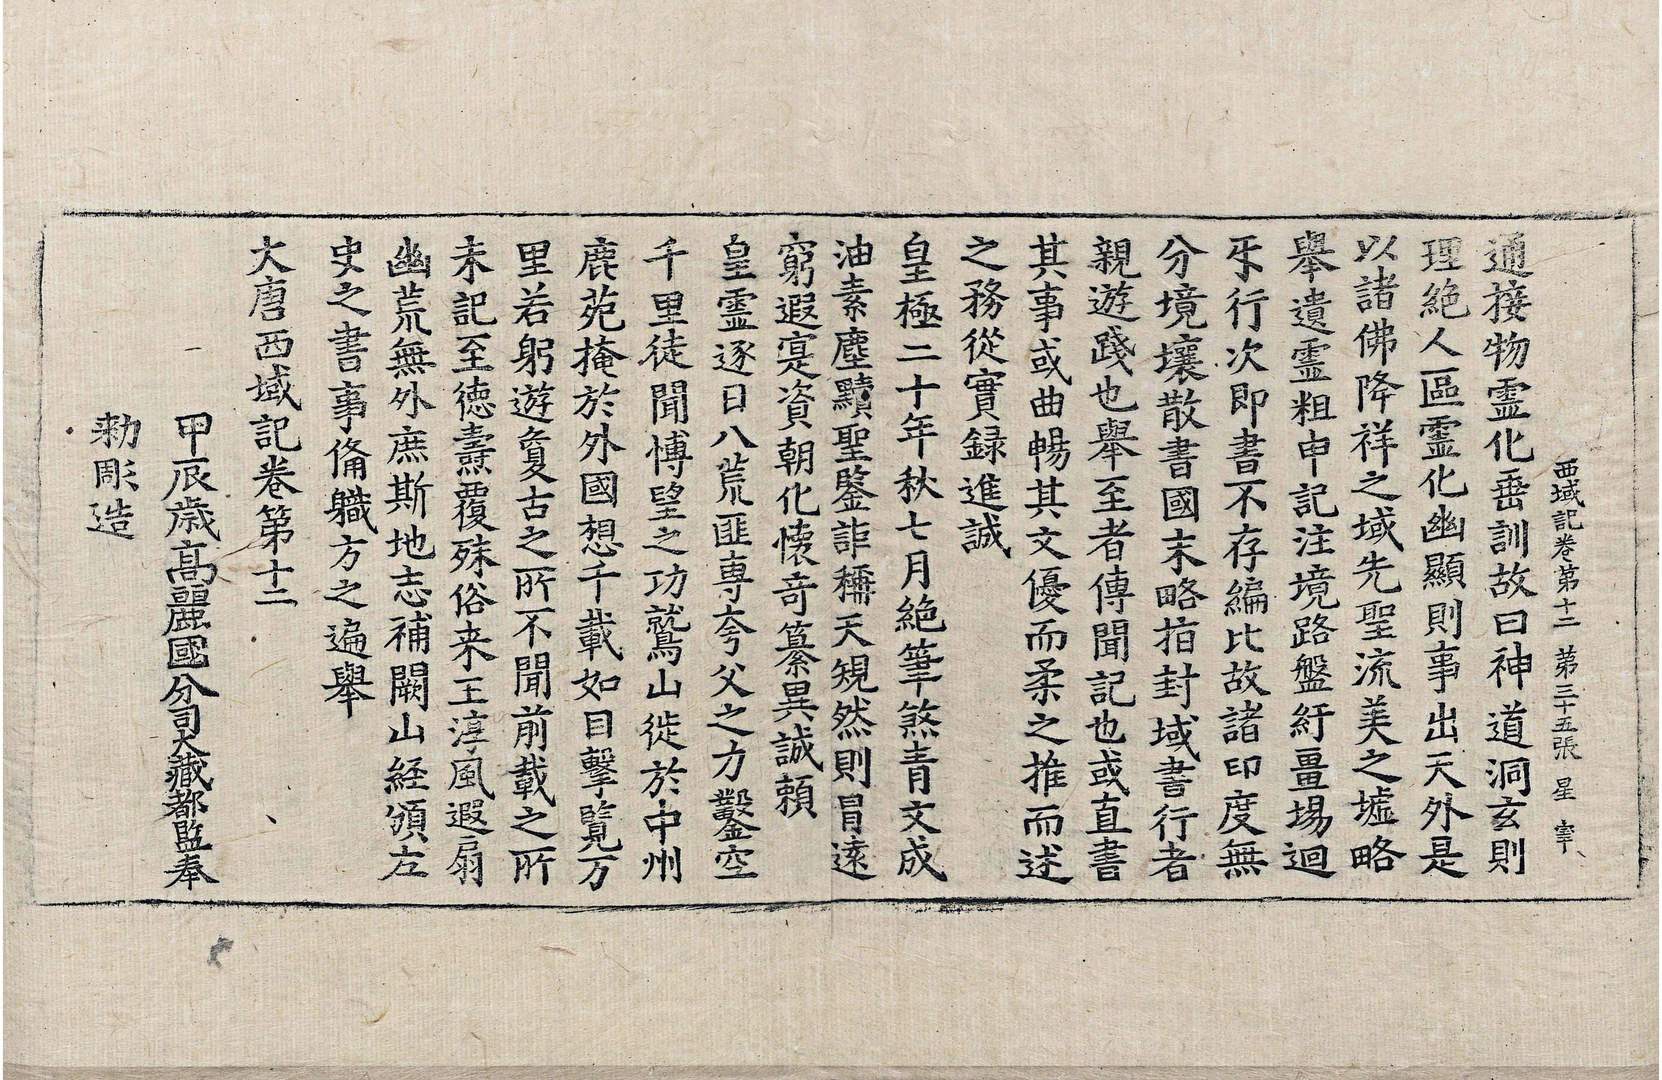 西域記卷第十二 第三十五張 星 宰
通接物霊化垂訓故曰神道洞玄則
理絶人區霊化幽顯則事出天外是
以諸佛降祥之域先聖流美之墟略
舉遺霊粗申記注境路盤紆畺場迴
牙行次即書不存編比故諸印度無
分境壤散書國末略指封域書行者
親遊踐也舉至者傳聞記也或直書
其事或曲暢其文優而柔之推而述
之務從實録進誠
皇極二十年秋七月絶筆煞青文成
油素塵黷聖鑒詎稱天規然則冒遠
窮遐寔資朝化懐奇纂異誠頼
皇霊逐日八荒匪専夸父之力鑿空
千里徒聞博望之功鷲山徙於中州
鹿苑掩於外國想千載如目擊覽万
里若躬遊敻古之所不聞前載之所
未記至徳燾覆殊俗来王淳風遐扇
幽荒無外庶斯地志補闕山経頒左
史之書事俻職方之遍舉
大唐西域記卷第十二
甲辰歳高麗國分司大藏都監奉
勅彫造